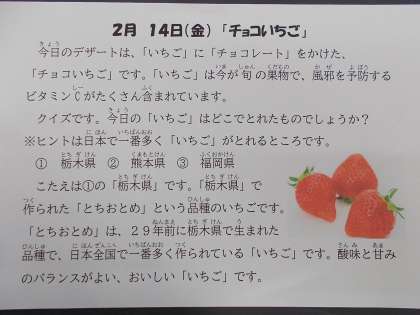 2月 14日(金)「チョコいちご」
今日のデザートは、「いちご」に「チョコレート」をかけた、
「チョコいちご」です。「いちご」は今が旬の果物で、風邪を予防する
ビタミンCがたくさん含まれています。
クイズです。今日の「いちご」はどこでとれたものでしょうか?
※ヒントは日本で一番多く「いちご」がとれるところです。
① 栃木県 ② 熊本県 ③ 福岡県
こたえは①の「栃木県」です。「栃木県」で
作られた「とちおとめ」という品種のいちごです。
「とちおとめ」は、29年前に栃木県で生まれた
品種で、日本全国で一番多く作られている「いちご」です。酸味と甘み
のバランスがよい、おいしい「いちご」です。